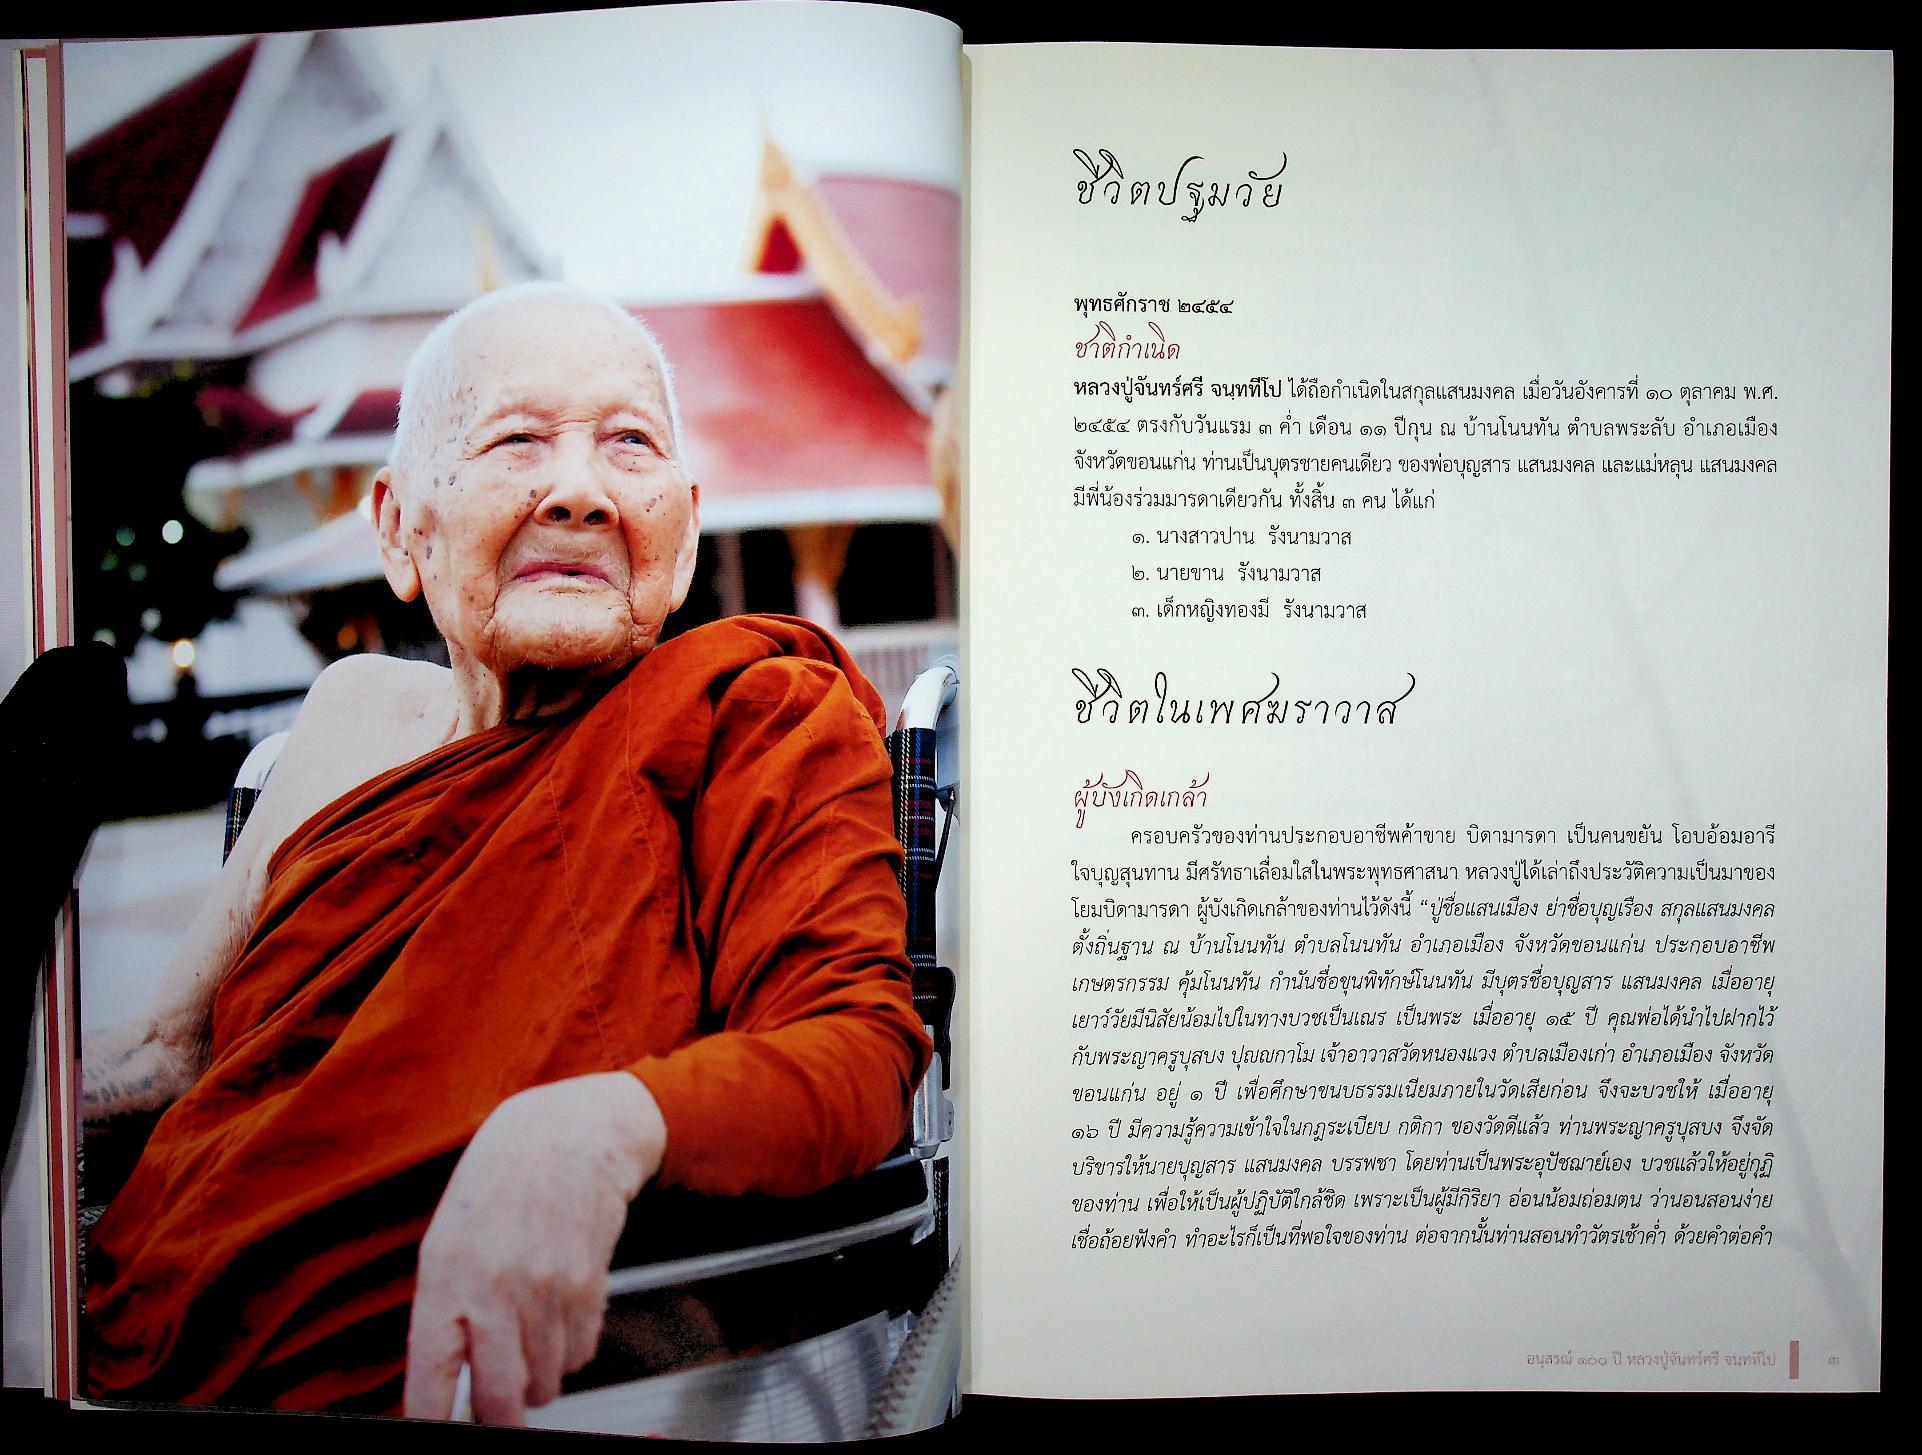 ชีวิตปฐมวัย
พุทธศักราช ๒๔๕๔
ชาติกำเนิด
หลวงปู่จันทร์ศรี จนฺททีโป ได้ถือกำเนิดในสกุลแสนมงคล เมื่อวันอังคารที่ ๑๐ ตุลาคม พ.ศ.
๒๔๕๔ ตรงกับวันแรม ๓ ค่ำ เดือน ๑๑ ปีกุน ณ บ้านโนนทัน ตำบลพระลับ อำเภอเมือง
จังหวัดขอนแก่น ท่านเป็นบุตรชายคนเดียว ของพ่อบุญสาร แสนมงคล และแม่หลุน แสนมงคล
มีพี่น้องร่วมมารดาเดียวกัน ทั้งสิ้น ๓ คน ได้แก่
๑. นางสาวปาน รังนามวาส
๒. นายขาน รังนามวาส
๓. เด็กหญิงทองมี รังนามวาส
ชีวิตในเพศฆราวาส
ผู้บังเกิดเกล้า
ครอบครัวของท่านประกอบอาชีพค้าขาย บิดามารดา เป็นคนขยัน โอบอ้อมอารี
ใจบุญสุนทาน มีศรัทธาเลื่อมใสในพระพุทธศาสนา หลวงปู่ได้เล่าถึงประวัติความเป็นมาของ
โยมบิดามารดา ผู้บังเกิดเกล้าของท่านไว้ดังนี้ “ปู่ชื่อแสนเมือง ย่าชื่อบุญเรือง สกุลแสนมงคล
ตั้งถิ่นฐาน ณ บ้านโนนทัน ตำบลโนนทัน อำเภอเมือง จังหวัดขอนแก่น ประกอบอาชีพ
เกษตรกรรม คุ้มโนนทัน กำนันชื่อขุนพิทักษ์โนนทัน มีบุตรชื่อบุญสาร แสนมงคล เมื่ออายุ
เยาว์วัยมีนิสัยน้อมไปในทางบวชเป็นเณร เป็นพระ เมื่ออายุ ๑๕ ปี คุณพ่อได้นำไปฝากไว้
กับพระญาครูบุสบง ปุญฺญกาโม เจ้าอาวาสวัดหนองแวง ตำบลเมืองเก่า อำเภอเมือง จังหวัด
ขอนแก่น อยู่ ๑ ปี เพื่อศึกษาขนบธรรมเนียมภายในวัดเสียก่อน จึงจะบวชให้ เมื่ออายุ
๑๖ ปี มีความรู้ความเข้าใจในกฎระเบียบ กติกา ของวัดดีแล้ว ท่านพระญาครูบุสบง จึงจัด
บริขารให้นายบุญสาร แสนมงคล บรรพชา โดยท่านเป็นพระอุปัชฌาย์เอง บวชแล้วให้อยู่กุฏิ
ของท่าน เพื่อให้เป็นผู้ปฏิบัติใกล้ชิด เพราะเป็นผู้มีกิริยา อ่อนน้อมถ่อมตน ว่านอนสอนง่าย
เชื่อถ้อยฟังคำ ทำอะไรก็เป็นที่พอใจของท่าน ต่อจากนั้นท่านสอนทำวัตรเช้าค่ำ ด้วยคำต่อคำ
อนุสรณ์ ๑๐๐ ปี หลวงปู่จันทร์ศรี จนฺททีโป ๓